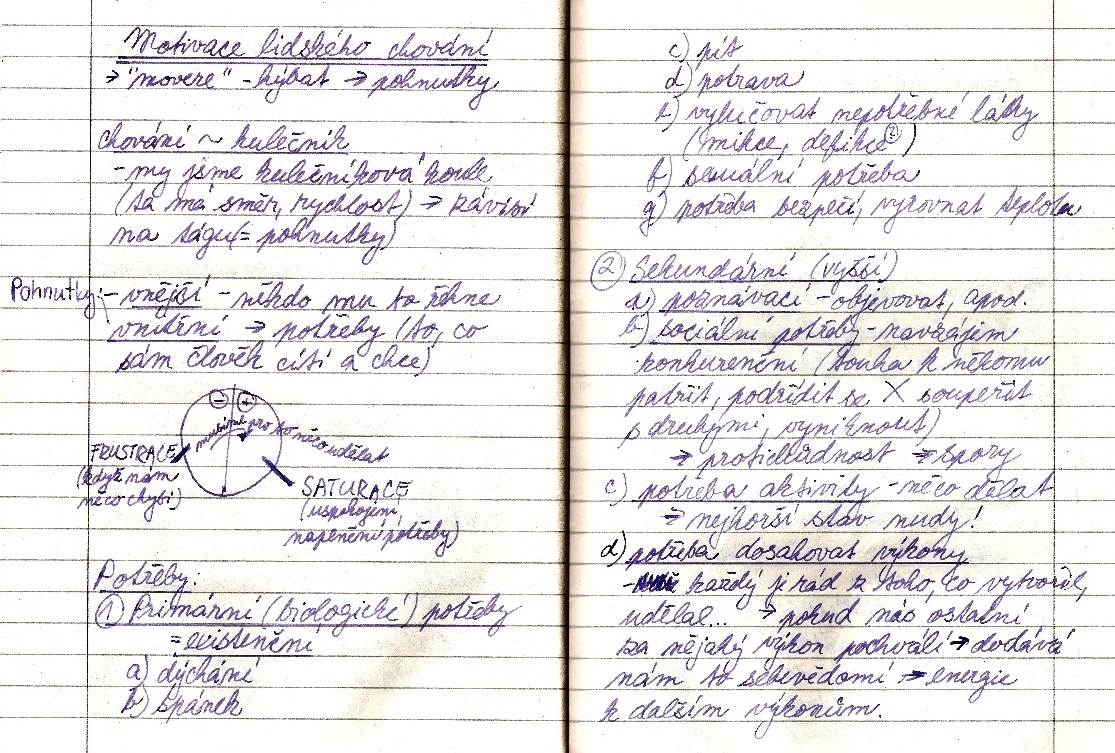 Motivace lidského chování
→ "movere" - hýbat → pohnutky
chování ~ kulečník
- my jsme kulečníková koule
(ta má směr, rychlost) → závisí
na tágu (= pohnutky)
Pohnutky: - vnější - někdo mu to řekne
vnitřní → potřeby (to, co
sám člověk cítí a chce)
- +
pro to něco udělat
FRUSTRACE
(když nám
něco chybí)
SATURACE
(uspokojení,
naplnění potřeby)
Potřeby:
① Primární (biologické) potřeby
= existenční
a) dýchání
b) spánek
c) pít
d) potrava
e) vylučovat nepotřebné látky
(mikce, defikce ?)
f) sexuální potřeba
g) potřeba bezpečí, vyrovnat teplota
② Sekundární (vyšší)
a) poznávací - objevovat, apod.
b) sociální potřeby - navzájem
konkurenční (touha k někomu
patřit, podřídit se X soupeřit
s druhými, vyniknout)
→ protikladnost → spory
c) potřeba aktivity - něco dělat
→ nejhorší stav nudy!
d) potřeba dosahovat výkony
- každý je rád z toho, co vytvořil,
udělal... → pokud nás ostatní
za nějaký výkon pochválí → dodává
nám to sebevědomí → energie
k dalším výkonům.